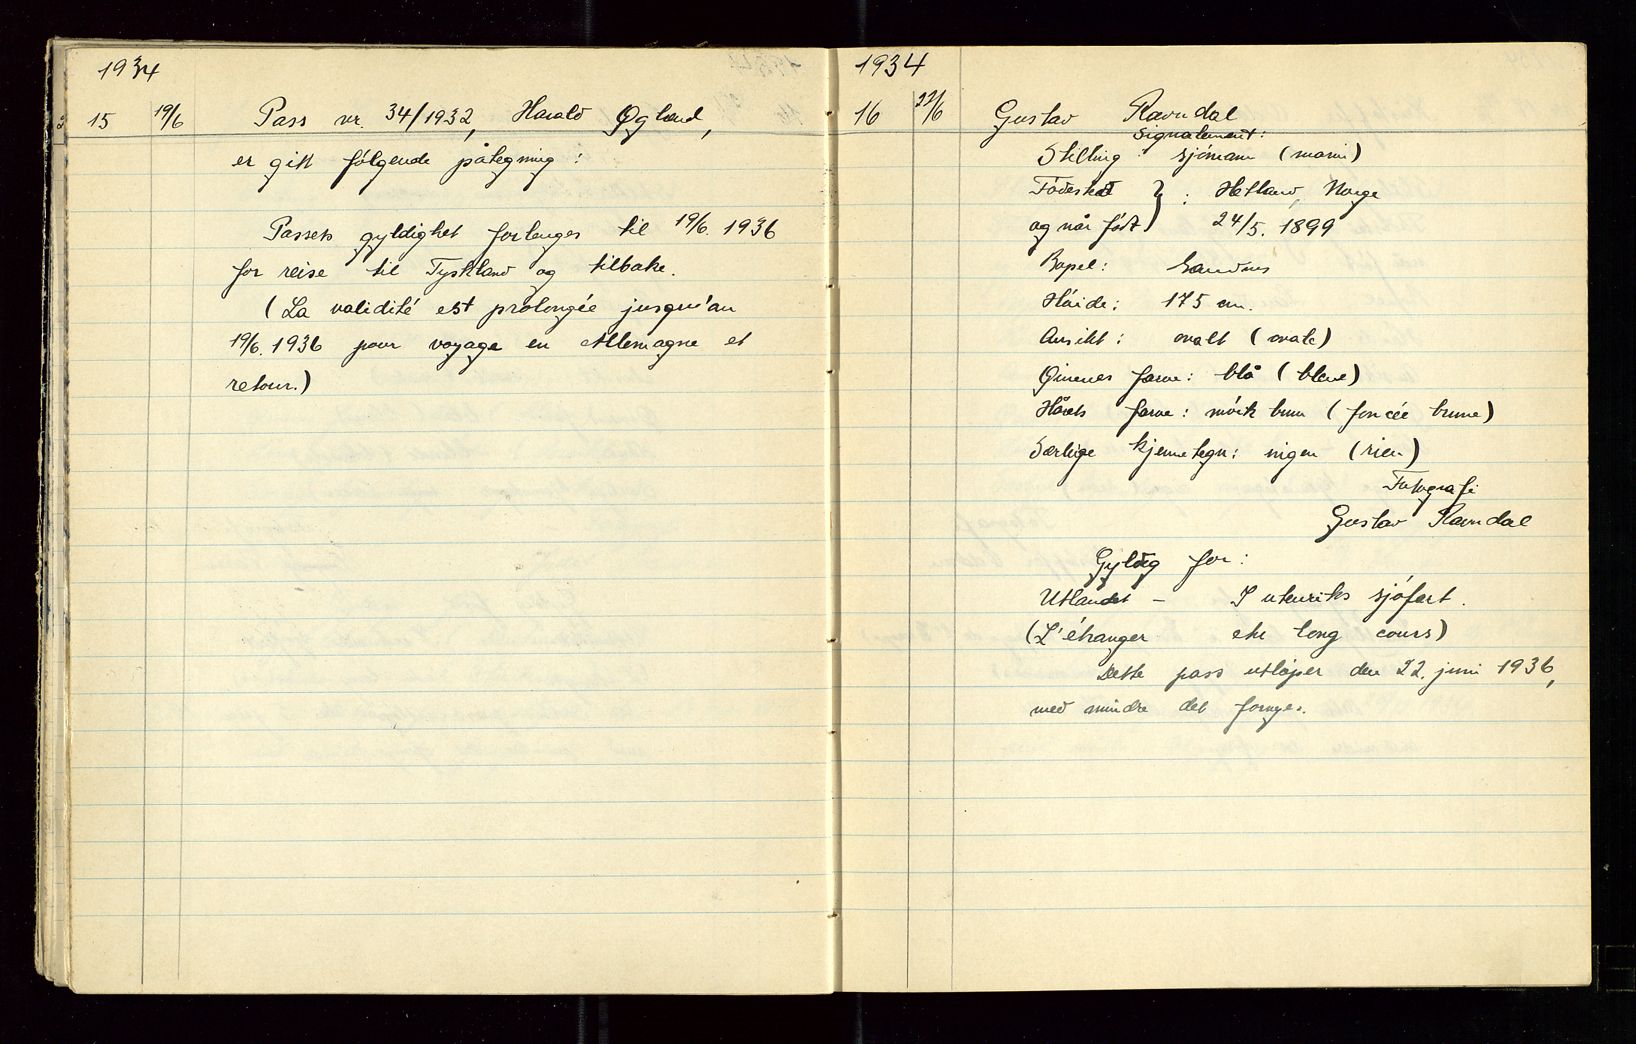 1934
15 19/6 Pass nr. 34/1932, Harald Øgland,
er gitt følgende påtegning:
Passets gyldighet forlenges til 19/6. 1936
for reise til Tyskland og tilbake.
(La validité est prolongée jusqu'au
19/6. 1936 pour voyage en Allemagne et
retour.)
1934
16 22/6 Gustav Ravndal
Signalement:
Stilling: sjómann (marin)
Fødested } : Hetland, Norge
og når født) 24/5. 1899
Bopel: Sandnes
Høide: 175 cm.
Ansikt: ovalt (ovale)
Øinenes farve: blå (bleue)
Hårets farve: mörk brun (foncée brune)
Særlige kjennetegn: ingen (rien)
Fotografi
Gustav Ravndal
Gyldig for:
Utlandet - I utenriks sjøfart.
(L'étranger et le long cours)
Dette pass utløper den 22. juni 1936,
med mindre det fornyes.